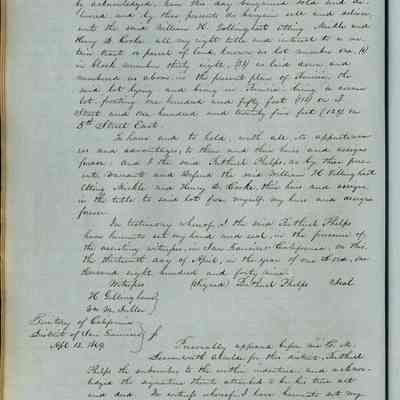 be acknowledged, have this day bargained sold and de-
livered and by these presents do bargain sell and deliver,
unto the said William H. Gillinghast Otting Mickle and
Henry D. Cooke all my right title and interest to a cer
tain tract or parcel of land, known as lot number one, (1)
in block number thirty eight, (38) as laid down and
numbered as above, in the present plan of Benicia, the
said lot lying and being in Benicia being a corner
lot, fronting one hundred and fifty feet (150) on I
Street and one hundred and twenty five feet (125) on
5th Street East.
To have and to hold, with all its appurtenan
ces and advantages, to them and their heirs and assigns
forever. And I the said Bethuel Phelps, do by these pres-
ents warrant and defend the said William H. Gillinghast
Otting Mickle and Henry D. Cooke, their heirs, and assigns,
in the title to said lot from myself, my heirs and assigns
forever.
In testimony whereof, I the said Bethuel Phelps
have hereunto set my hand and seal, in the presence of
the assisting witnesses, in San Francisco, California, on this
the thirteenth day of April, in the year of our Lord, one
thousand eight hundred and forty nine.
Witnesses (Signed) Bethuel Phelps Seal
H Gillingham
Wm M. Fuller
Territory of California
District of San Francisco
Apl. 13. 1849.
Personally appeared before me Th. M.
Leavenworth Alcalde for this district, Bethuel
Phelps the subscriber to the within indenture and acknow-
ledged the signature thereto attached to be his true act
and deed. In witness whereof I have hereunto set my